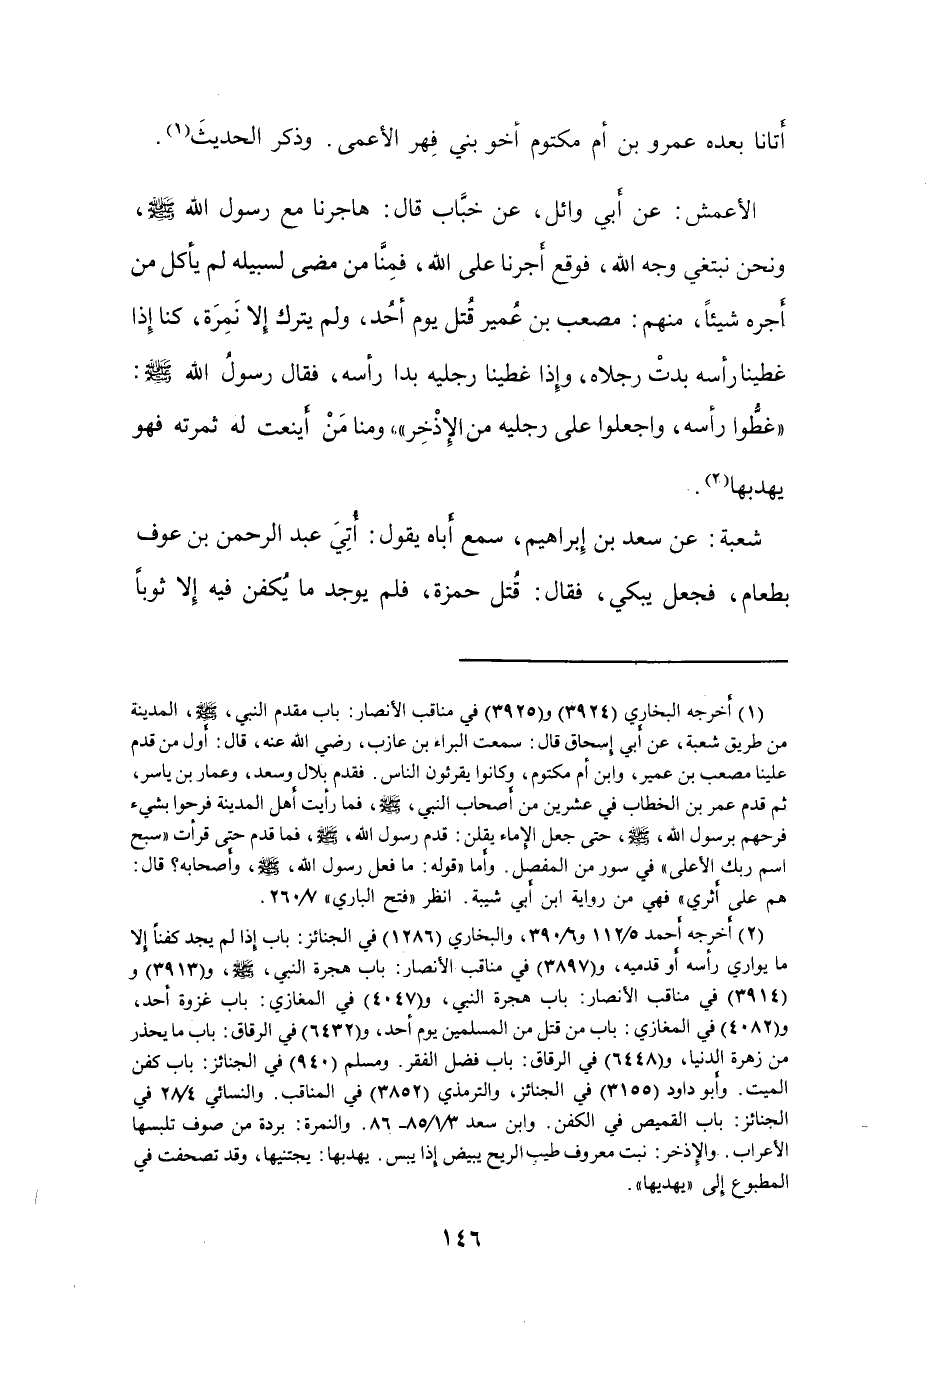 أَتانا بعده عمرو بن أم مكتوم أخو بني فِهر الأعمى. وذكر الحديثَ(١).
الأعمش: عن أَبي وائل، عن خبَّاب قال: هاجرنا مع رسول الله ﷺ،
ونحن نبتغي وجه الله، فوقع أَجرنا على الله، فمِنَّا من مضى لسبيله لم يأكل من
أَجره شيئاً، منهم: مصعب بن عُمير قُتل يوم أُحُد، ولم يترك إِلا نَمِرَة، كنا إِذا
غطينا رأسه بدتْ رجلاه، وإِذا غطينا رجليه بدا رأسه، فقال رسولُ الله ﷺ:
«غطُّوا رأسه، واجعلوا على رجليه من الإِذْخِر»، ومنا مَنْ أَينعت له ثمرته فهو
يهدبها(٢).
شعبة: عن سعد بن إِبراهيم، سمع أَباه يقول: أُتِيَ عبد الرحمن بن عوف
بطعام، فجعل يبكي، فقال: قُتل حمزة، فلم يوجد ما يُكفن فيه إِلا ثوباً
(١) أخرجه البخاري (٣٩٢٤) و(٣٩٢٥) في مناقب الأنصار: باب مقدم النبي، ﷺ، المدينة
من طريق شعبة، عن أبي إسحاق قال: سمعت البراء بن عازب، رضي الله عنه، قال: أول من قدم
علينا مصعب بن عمير، وابن أم مكتوم، وكانوا يقرئون الناس. فقدم بلال وسعد، وعمار بن ياسر،
ثم قدم عمر بن الخطاب في عشرين من أصحاب النبي، ﷺ، فما رأيت أهل المدينة فرحوا بشيء
فرحهم برسول الله، ﷺ، حتى جعل الإماء يقلن: قدم رسول الله، ﷺ، فما قدم حتى قرأت «سبح
اسم ربك الأعلى» في سور من المفصل. وأما «قوله: ما فعل رسول الله، ﷺ، وأصحابه؟ قال:
هم على أثري» فهي من رواية ابن أبي شيبة. انظر «فتح الباري» ٢٦٠/٧.
(٢) أخرجه أحمد ١١٢/٥ و٣٩٠/٦، والبخاري (١٢٨٦) في الجنائز: باب إذا لم يجد كفناً إلا
ما يواري رأسه أو قدميه، و(٣٨٩٧) في مناقب الأنصار: باب هجرة النبي، ﷺ، و(٣٩١٣) و
(٣٩١٤) في مناقب الأنصار: باب هجرة النبي، و(٤٠٤٧) في المغازي: باب غزوة أحد،
و(٤٠٨٢) في المغازي: باب من قتل من المسلمين يوم أحد، و(٦٤٣٢) في الرقاق: باب ما يحذر
من زهرة الدنيا، و(٦٤٤٨) في الرقاق: باب فضل الفقر. ومسلم (٩٤٠) في الجنائز: باب كفن
الميت. وأبو داود (٣١٥٥) في الجنائز، والترمذي (٣٨٥٢) في المناقب. والنسائي ٢٨/٤ في
الجنائز: باب القميص في الكفن. وابن سعد ٨٥/١/٣ـ ٨٦. والنمرة: بردة من صوف تلبسها
الأعراب. والإذخر: نبت معروف طيب الريح يبيض إذا يبس. يهدبها: يجتنيها، وقد تصحفت في
المطبوع إلى «يهديها».
١٤٦